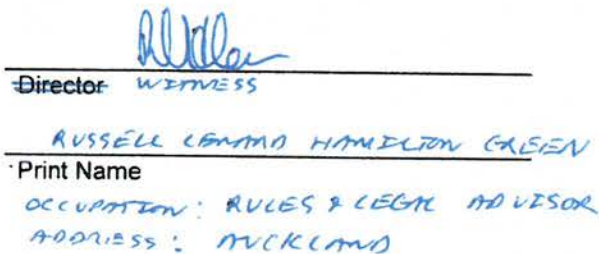 Director WITNESS
RUSSELL LENARD HAMILTON GREEN
Print Name
OCCUPATION: RULES & LEGAL ADVISOR
ADDRESS: AUCKLAND